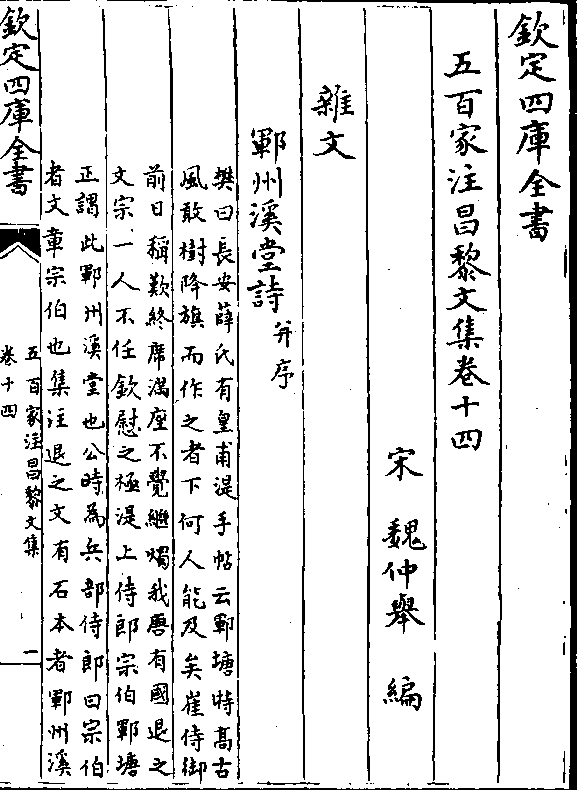 欽定四庫全書
五百家注昌黎文集卷十四
宋 魏仲舉 編
雜文
鄆州溪堂詩并序
樊曰長安薛氏有皇甫湜手帖云鄆塘特髙古
風敢樹降旗而作之者下何人能及矣崔侍御
前日稱歎終席滿座不覺繼燭我唐有國退之
文宗一人不任欽慰之極湜上侍郎宗伯鄆塘
正謂此鄆州溪堂也公時為兵部侍郎曰宗伯
者文章宗伯也集注退之文有石本者鄆州溪
欽定四庫全書
五百家注昌黎文集
卷十四
一